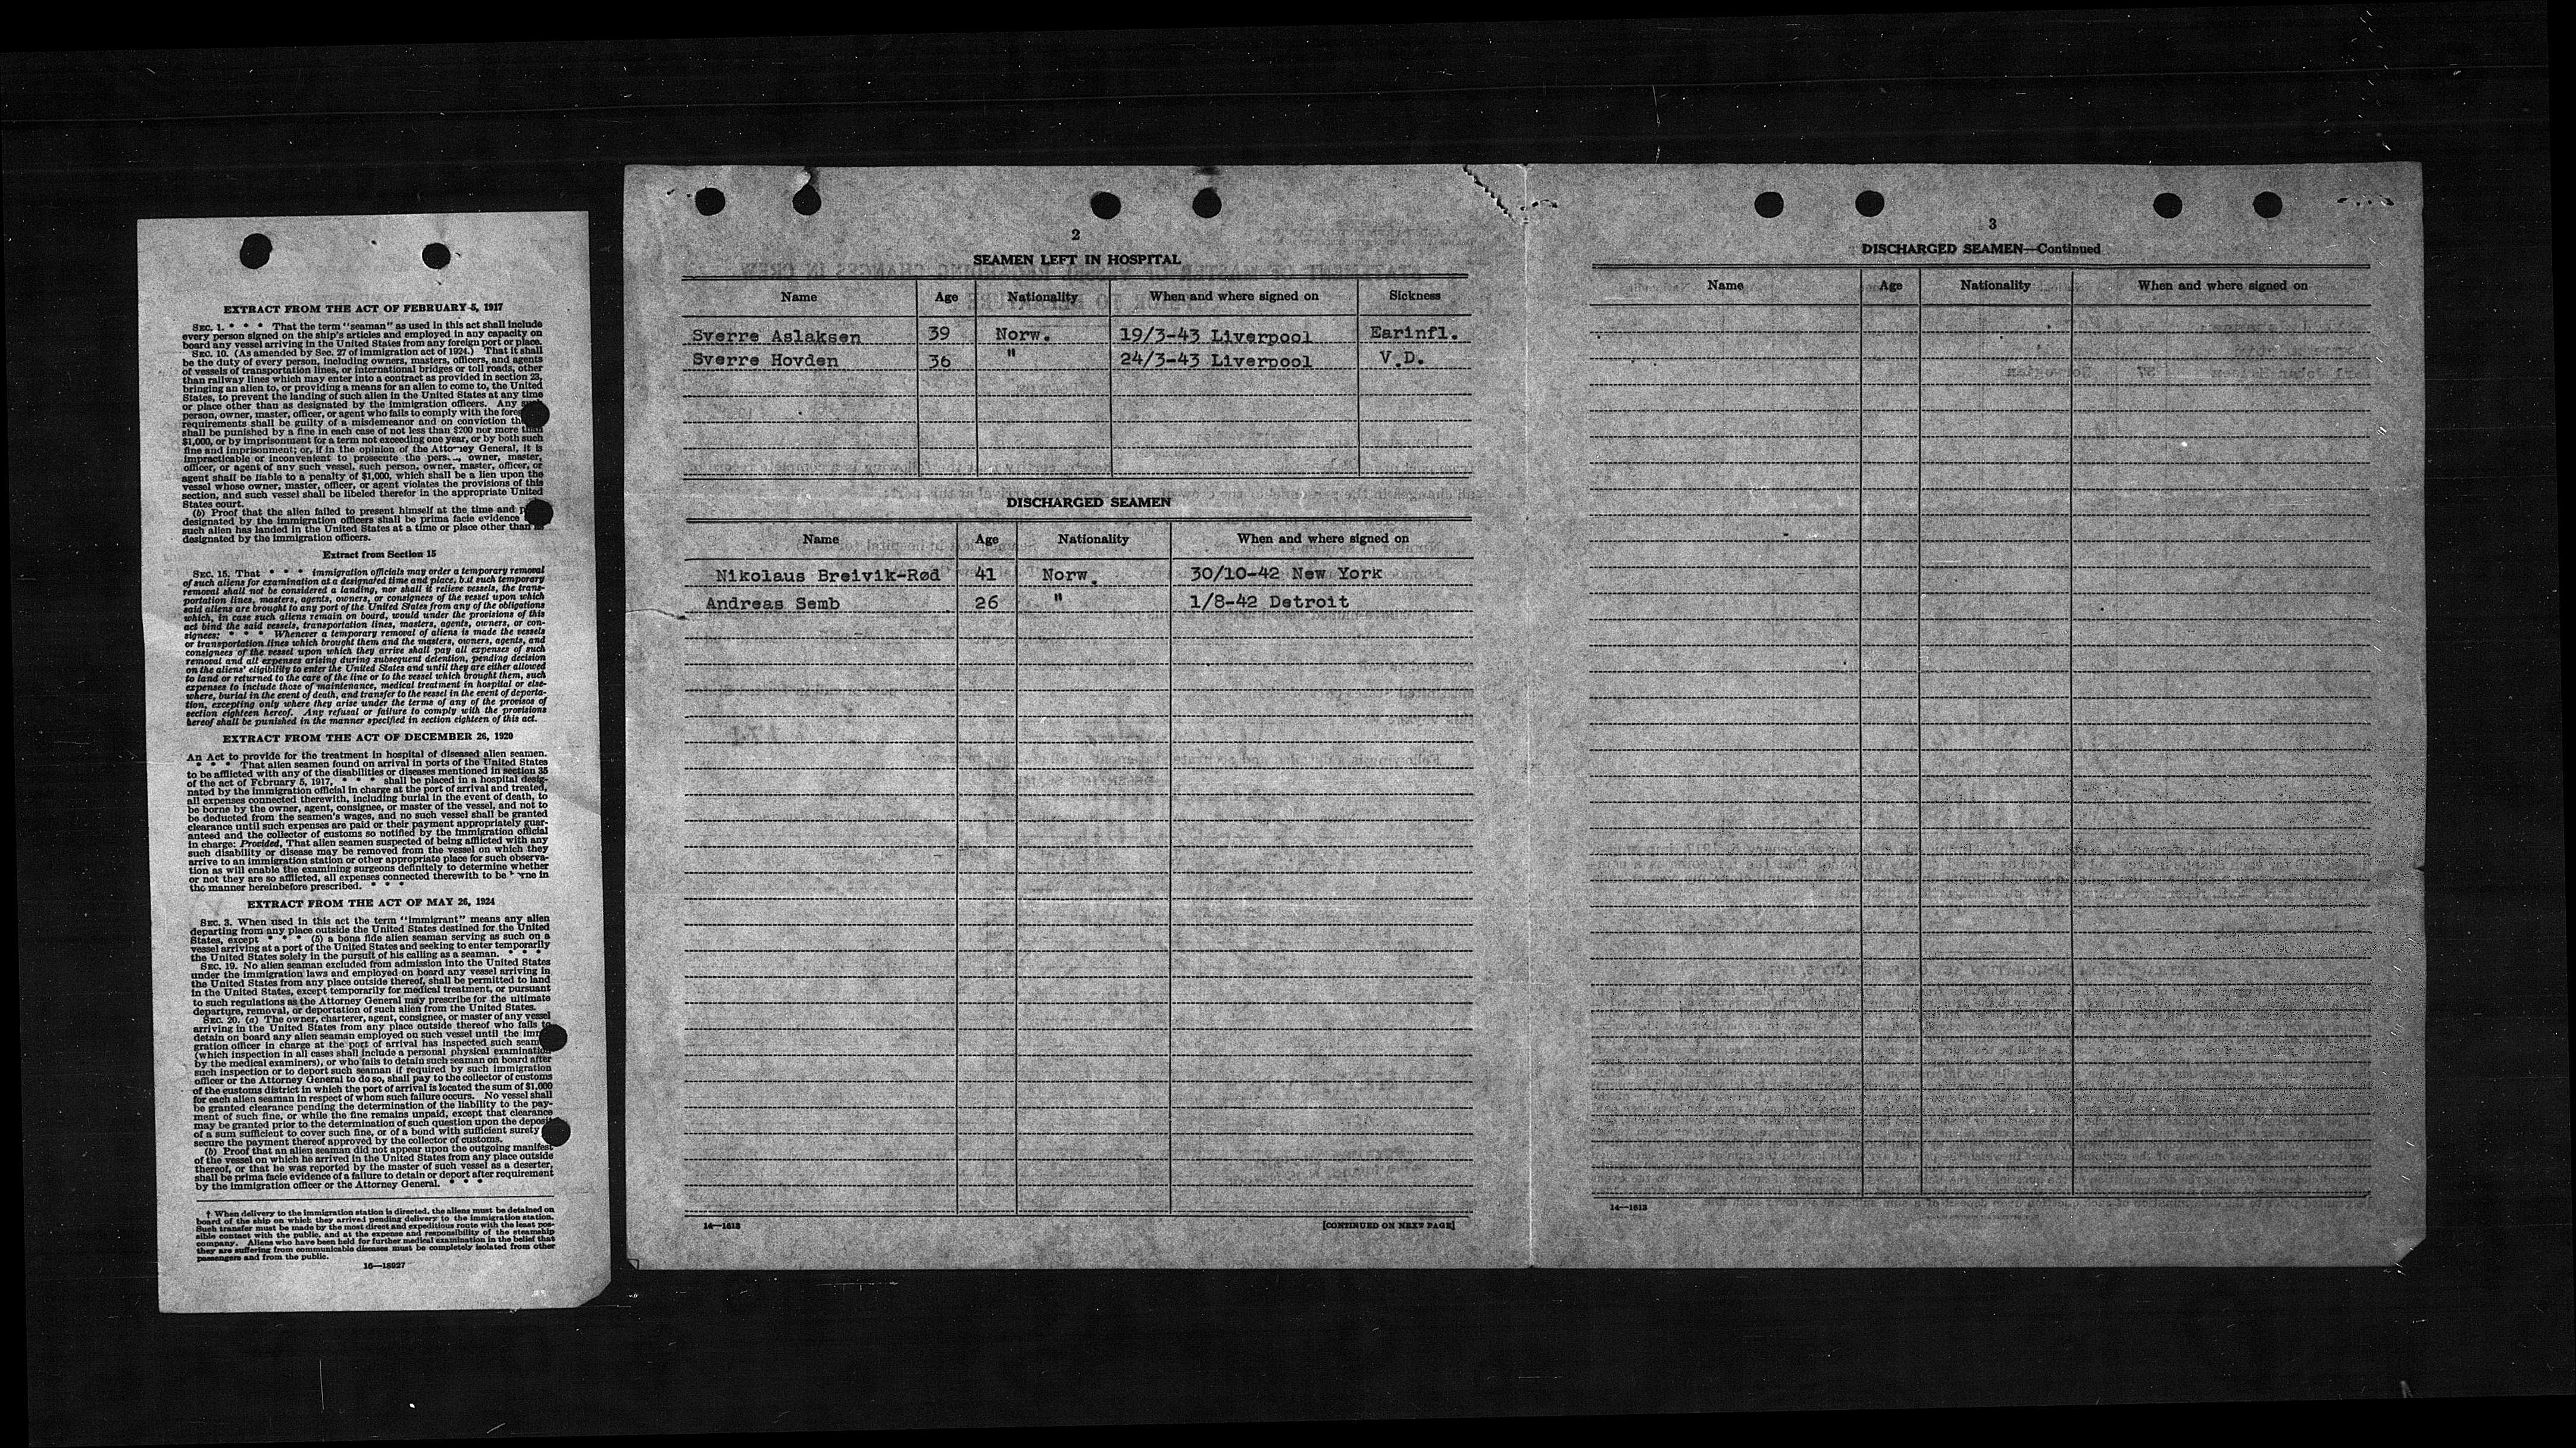 EXTRACT FROM THE ACT OF FEBRUARY 5, 1917
SEC. 1. * * * That the term "seaman" as used in this act shall include
every person signed on the ship's articles and employed in any capacity on
board any vessel arriving in the United States from any foreign port or place.
SEC. 10. (As amended by Sec. 27 of immigration act of 1924.) That it shall
be the duty of every person, including owners, masters, officers, and agents
of vessels of transportation lines, or international bridges or toll roads, other
than railway lines which may enter into a contract as provided in section 23,
bringing an alien to, or providing a means for an alien to come to, the United
States, to prevent the landing of such alien in the United States at any time
or place other than as designated by the immigration officers. Any such
person, owner, master, officer, or agent who fails to comply with the
requirements shall be guilty of a misdemeanor and on conviction
shall be punished by a fine in each case of not less than $200 nor more than
$1,000, or by imprisonment for a term not exceeding one year, or by both such
fine and imprisonment; or, if in the opinion of the Attorney General, it is
impracticable or inconvenient to prosecute the owner, master,
officer, or agent of any such vessel, such person, owner, master, officer, or
agent shall be liable to a penalty of $1,000, which shall be a lien upon the
vessel whose owner, master, officer, or agent violates the provisions of this
section, and such vessel shall be libeled therefor in the appropriate United
States court.
(b) Proof that the alien failed to present himself at the time and
designated by the immigration officers shall be prima facie evidence
such alien has landed in the United States at a time or place other than as
designated by the immigration officers.
Extract from Section 15
SEC. 15. That * * * immigration officials may order a temporary removal
of such aliens for examination at a designated time and place, but such temporary
removal shall not be considered a landing, nor shall it relieve vessels, the trans-
portation lines, masters, agents, owners, or consignees of the vessel upon which
said aliens are brought to any port of the United States from any of the obligations
which, in case such aliens remain on board, would under the provisions of this
act bind the said vessels, transportation lines, masters, agents, owners, or con-
signees: * * * Whenever a temporary removal of aliens is made the vessels
or transportation lines which brought them and the masters, owners, agents, and
consignees of the vessel upon which they arrive shall pay all expenses of such
removal and all expenses arising during subsequent detention, pending decision
on the aliens' eligibility to enter the United States and until they are either allowed
to land or returned to the care of the line or to the vessel which brought them, such
expenses to include those of maintenance, medical treatment in hospital or else-
where, burial in the event of death, and transfer to the vessel in the event of deporta-
tion, excepting only where they arise under the terms of any of the provisos of
section eighteen hereof. Any refusal or failure to comply with the provisions
hereof shall be punished in the manner specified in section eighteen of this act.
EXTRACT FROM THE ACT OF DECEMBER 26, 1920
An Act to provide for the treatment in hospital of diseased alien seamen.
* * * That alien seamen found on arrival in ports of the United States
to be afflicted with any of the disabilities or diseases mentioned in section 35
of the act of February 5, 1917, * * * shall be placed in a hospital desig-
nated by the immigration official in charge at the port of arrival and treated,
all expenses connected therewith, including burial in the event of death, to
be borne by the owner, agent, consignee, or master of the vessel, and not to
be deducted from the seamen's wages, and no such vessel shall be granted
clearance until such expenses are paid or their payment appropriately guar-
anteed and the collector of customs so notified by the immigration official
in charge: Provided, That alien seamen suspected of being afflicted with any
such disability or disease may be removed from the vessel on which they
arrive to an immigration station or other appropriate place for such observa-
tion as will enable the examining surgeons definitely to determine whether
or not they are so afflicted, all expenses connected therewith to be in
the manner hereinbefore prescribed. * * *
EXTRACT FROM THE ACT OF MAY 26, 1924
SEC. 3. When used in this act the term "immigrant" means any alien
departing from any place outside the United States destined for the United
States, except * * * (5) a bona fide alien seaman serving as such on a
vessel arriving at a port of the United States and seeking to enter temporarily
the United States solely in the pursuit of his calling as a seaman. * * *
SEC. 19. No alien seaman excluded from admission into the United States
under the immigration laws and employed on board any vessel arriving in
the United States from any place outside thereof, shall be permitted to land
in the United States, except temporarily for medical treatment, or pursuant
to such regulations as the Attorney General may prescribe for the ultimate
departure, removal, or deportation of such alien from the United States.
SEC. 20. (a) The owner, charterer, agent, consignee, or master of any vessel
arriving in the United States from any place outside thereof who fails to
detain on board any alien seaman employed on such vessel until the immi-
gration officer in charge at the port of arrival has inspected such seaman
(which inspection in all cases shall include a personal physical examination
by the medical examiners), or who fails to detain such seaman on board after
such inspection or to deport such seaman if required by such immigration
officer or the Attorney General to do so, shall pay to the collector of customs
of the customs district in which the port of arrival is located the sum of $1,000
for each alien seaman in respect of whom such failure occurs. No vessel shall
be granted clearance pending the determination of the liability to the pay-
ment of such fine, or while the fine remains unpaid, except that clearance
may be granted prior to the determination of such question upon the deposit
of a sum sufficient to cover such fine, or of a bond with sufficient surety
secure the payment thereof approved by the collector of customs.
(b) Proof that an alien seaman did not appear upon the outgoing manifest
of the vessel on which he arrived in the United States from any place outside
thereof, or that he was reported by the master of such vessel as a deserter,
shall be prima facie evidence of a failure to detain or deport after requirement
by the immigration officer or the Attorney General. * * *
† When delivery to the immigration station is directed, the aliens must be detained on
board of the ship on which they arrived pending delivery to the immigration station.
Such transfer must be made by the most direct and expeditious route with the least pos-
sible contact with the public, and at the expense and responsibility of the steamship
company. Aliens who have been held for further medical examination in the belief that
they are suffering from communicable diseases must be completely isolated from other
passengers and from the public.
16—18927
2
SEAMEN LEFT IN HOSPITAL
Name Age Nationality When and where signed on Sickness
Sverre Aslaksen 39 Norw. 19/3-43 Liverpool Earinfl.
Sverre Hovden 36 " 24/3-43 Liverpool V.D.
DISCHARGED SEAMEN
Name Age Nationality When and where signed on
Nikolaus Breivik-Rød 41 Norw. 30/10-42 New York
Andreas Semb 26 " 1/8-42 Detroit
14—1613
[CONTINUED ON NEXT PAGE]
3
DISCHARGED SEAMEN—Continued
Name Age Nationality When and where signed on
14—1613